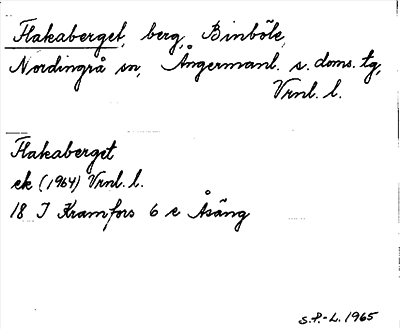 Flakaberget, berg, Binböle,
Nordingrå sn, Ångermanl. s. doms. tg,
Vrnl. l.
Flakaberget
ek (1964) Vrnl. l.
18 I Kramfors 6 e Åsäng
S.P.-L. 1965